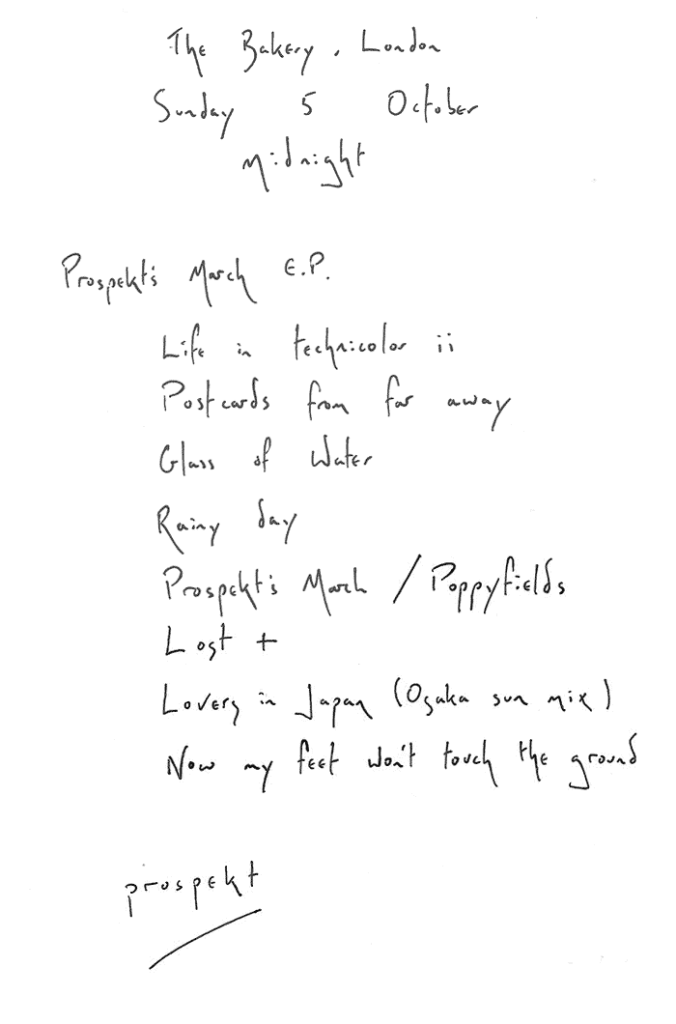 The Bakery, London
Sunday 5 October
Midnight
Prospekt's March E.P.
Life in technicolor ii
Postcards from far away
Glass of Water
Rainy day
Prospekt's March / Poppyfields
Lost +
Lovers in Japan (Osaka sun mix)
Now my feet won't touch the ground
prospekt